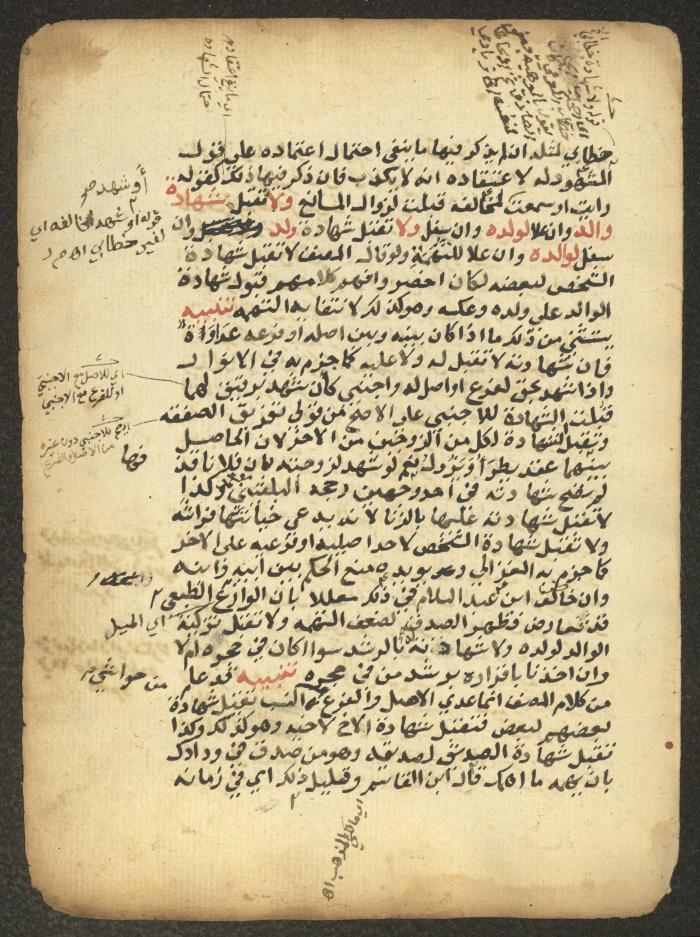 خطابي لمثله ان لم يذكر فيها ما ينفي احتمال اعتماده على قول
المشهود له لاعتقاده انه لا يكذب فان ذكر فيها ذلك كقوله
رايت او سمعت لمخالفه قبلت لزوال المانع ولا تقبل شهادة
والد وان علا لولده وان سفل ولا تقبل شهادة ولد وان
سفل لوالده وان علا للتهمة ولو قال المصنف لا تقبل شهادة
الشخص لبعضه لكان اخصر وافهم كلامهم قبول شهادة
الوالد على ولده وعكسه وهو كذلك لانتفاء التهمة تنبيه
يستثنى من ذلك ما اذا كان بينه وبين اصله او فرعه عداوة
فان شهادته لا تقبل له ولا عليه كما جزم به في الانوار
واذا شهد بحق لفرع او اصل له واجنبي كان شهد برقيق لهما
قبلت الشهادة للاجنبي على الاصح من قولي تفريق الصفقة
وتقبل الشهادة لكل من الزوجين من الاخر لان الحاصل
بينهما عقد يطرأ ويزول نعم لو شهد لزوجته بان فلانا قذفها
لم تصح شهادته في احد وجهين رجحه البلقيني وكذا
لا تقبل شهادته عليها بالزنا لانه يدعي خيانتها فراشه
ولا تقبل شهادة الشخص لاحد اصليه او فرعيه على الاخر
كما جزم به الغزالي ويؤيده منع الحكم بين ابيه وابنه
وان خالف ابن عبد السلام في ذلك معللا بان الوازع الطبعي
قد تعارض فظهر الصدق لضعف التهمة ولا تقبل تزكية
الوالد لولده ولا شهادته له بالرشد سوا اكان في حجره ام لا
وان اخذنا باقراره برشد من في حجره تنبيه قد علم
من كلام المصنف ان ما عدي الاصل والفرع من النسب تقبل شهادة
بعضهم لبعض فتقبل شهادة الاخ لاخيه وهو كذلك وكذا
تقبل شهادة الصديق لصديقه وهو من صدق في ودادك
بان يهمه ما اهمك قال ابن القاسم وقليل ذلك اي في زمانه
أو شهد
قوله او شهد لمخالفه اي
لغير خطابي
اي للاصل مع الاجنبي
او للفرع مع الاجنبي
للاجنبي دون غيره
من الاصل والفرع
اي الميل
من حواشي